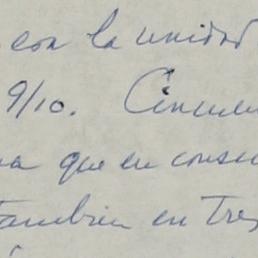 con la unidad
9/10. Cincuen
na que en consec
tambien en Tres